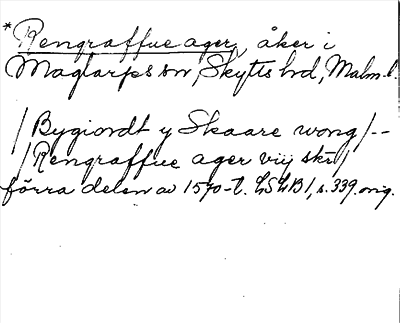 *Rengraffue ager, åker i
Maglarps sn, Skytts hd, Malm. l.
/Bygiordt y Skaare wong/--
/Rengraffue ager viij skr/
förra delen av 1570-t. LSLB 1, s. 339. orig.